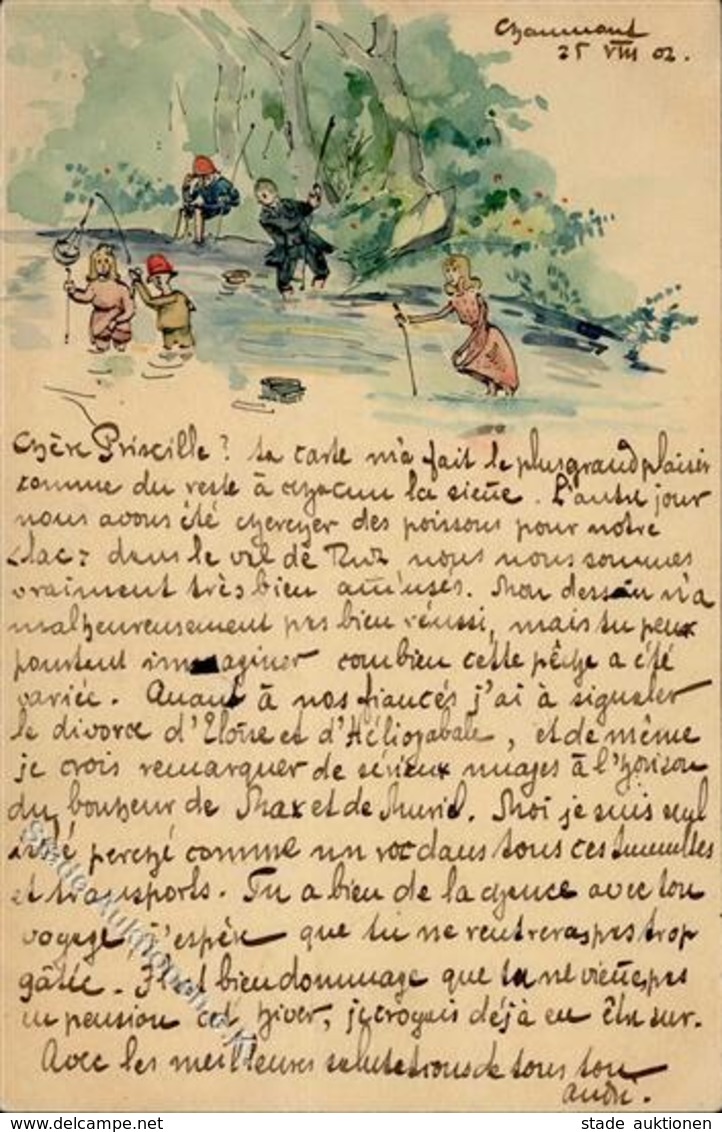 Chaumont
25 VIII 02.
Chère Priscille? ta carte m'a fait le plus grand plaisir
comme du reste à chacun la sienne. L'autre jour
nous avons été chercher des poissons pour notre
<lac> dans le val de Ruz nous nous sommes
vraiment très bien amusés. Mon dessin n'a
malheureusement pas bien réussi, mais tu peux
pourtant immaginer combien cette pêche a été
variée. Quant à nos fiancés j'ai à signaler
le divorce d'Eloïse et d'Héliogabale, et de même
je crois remarquer de sérieux nuages à l'horizon
du bonheur de Max et de Muriel. Moi je suis seul
resté perché comme un roc dans tous ces tumultes
et transports. Tu a bien de la chence avec ton
voyage, j'espère que tu ne rentreras pas trop
gâtée. Il est bien dommage que tu ne viene pas
en pension cet hiver, je croyais déjà en être sur.
Avec les meilleures salutations de tous ton
André.
stade auktionen